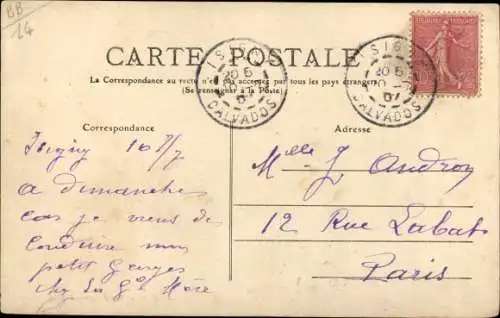 BB
14
CARTE POSTALE
La Correspondance au recto n'est pas acceptée par tous les pays étrangers
(Se renseigner à la Poste)
ISIGNY
20 5
07
CALVADOS
ISIGNY
20 5
07
CALVADOS
Correspondance
Adresse
Isigny 10/7
A dimanche
car je viens de
conduire mon
petit Georges
chez sa Gd Mère
Melle J. Andron
12 Rue Labat
Paris